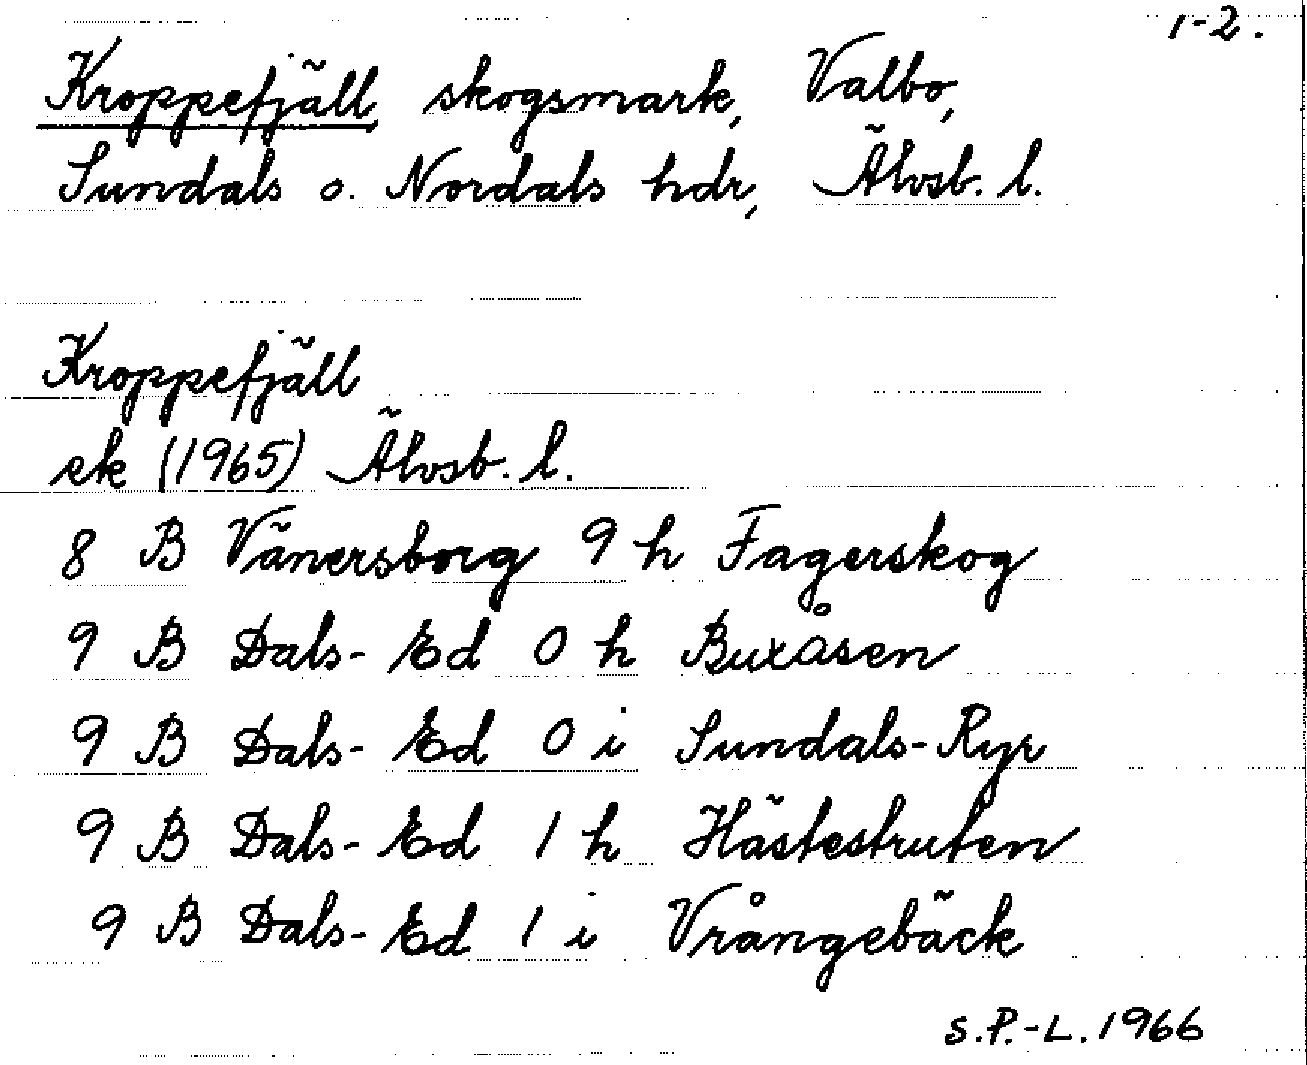 1-2.
Kroppefjäll skogsmark, Valbo,
Sundals o. Nordals hdr, Älvsb. l.
Kroppefjäll
ek (1965) Älvsb. l.
8 B Vänersborg 9 h Fagerskog
9 B Dals-Ed 0 h Buxåsen
9 B Dals-Ed 0 i Sundals-Ryr
9 B Dals-Ed 1 h Hästestruten
9 B Dals-Ed 1 i Vrångebäck
S.P.-L. 1966